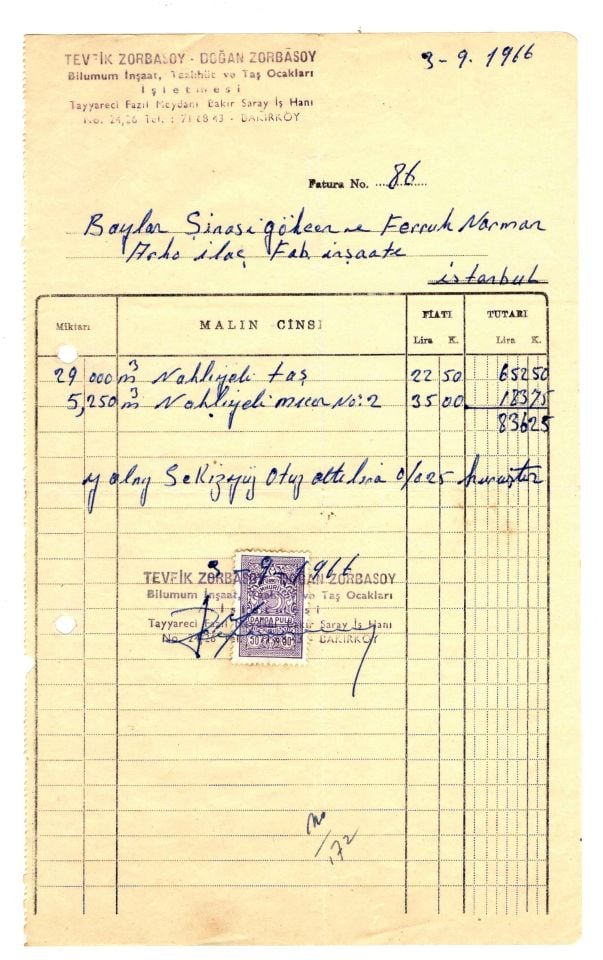 TEVFİK ZORBASOY - DOĞAN ZORBASOY
Bilumum İnşaat, Taahhüt ve Taş Ocakları
İşletmesi
Tayyareci Fazıl Meydanı Bakır Saray İş Hanı
No. 24,26 Tel. : 71 68 43 - BAKIRKÖY
3-9.1966
Fatura No. 86
Baylar Şinasi gökcen ve Ferruh Norman
ilaç Fab. inşaatı
istanbul
Miktarı MALIN CİNSİ FİATI TUTARI
Lira K. Lira K.
29 000 m3 Nakliyeli taş 22 50 652 50
5,250 m3 Nakliyeli mıcır No: 2 35 00 183 75
836 25
yalnız Sekizyüz Otuz altı lira 0/025 kuruştur
3-9-1966
TEVFİK ZORBASOY - DOĞAN ZORBASOY
Bilumum İnşaat, Taahhüt ve Taş Ocakları
İşletmesi
Tayyareci Fazıl Meydanı Bakır Saray İş Hanı
DAMGA PULU
No. 24,26 BAKIRKÖY
No
/172